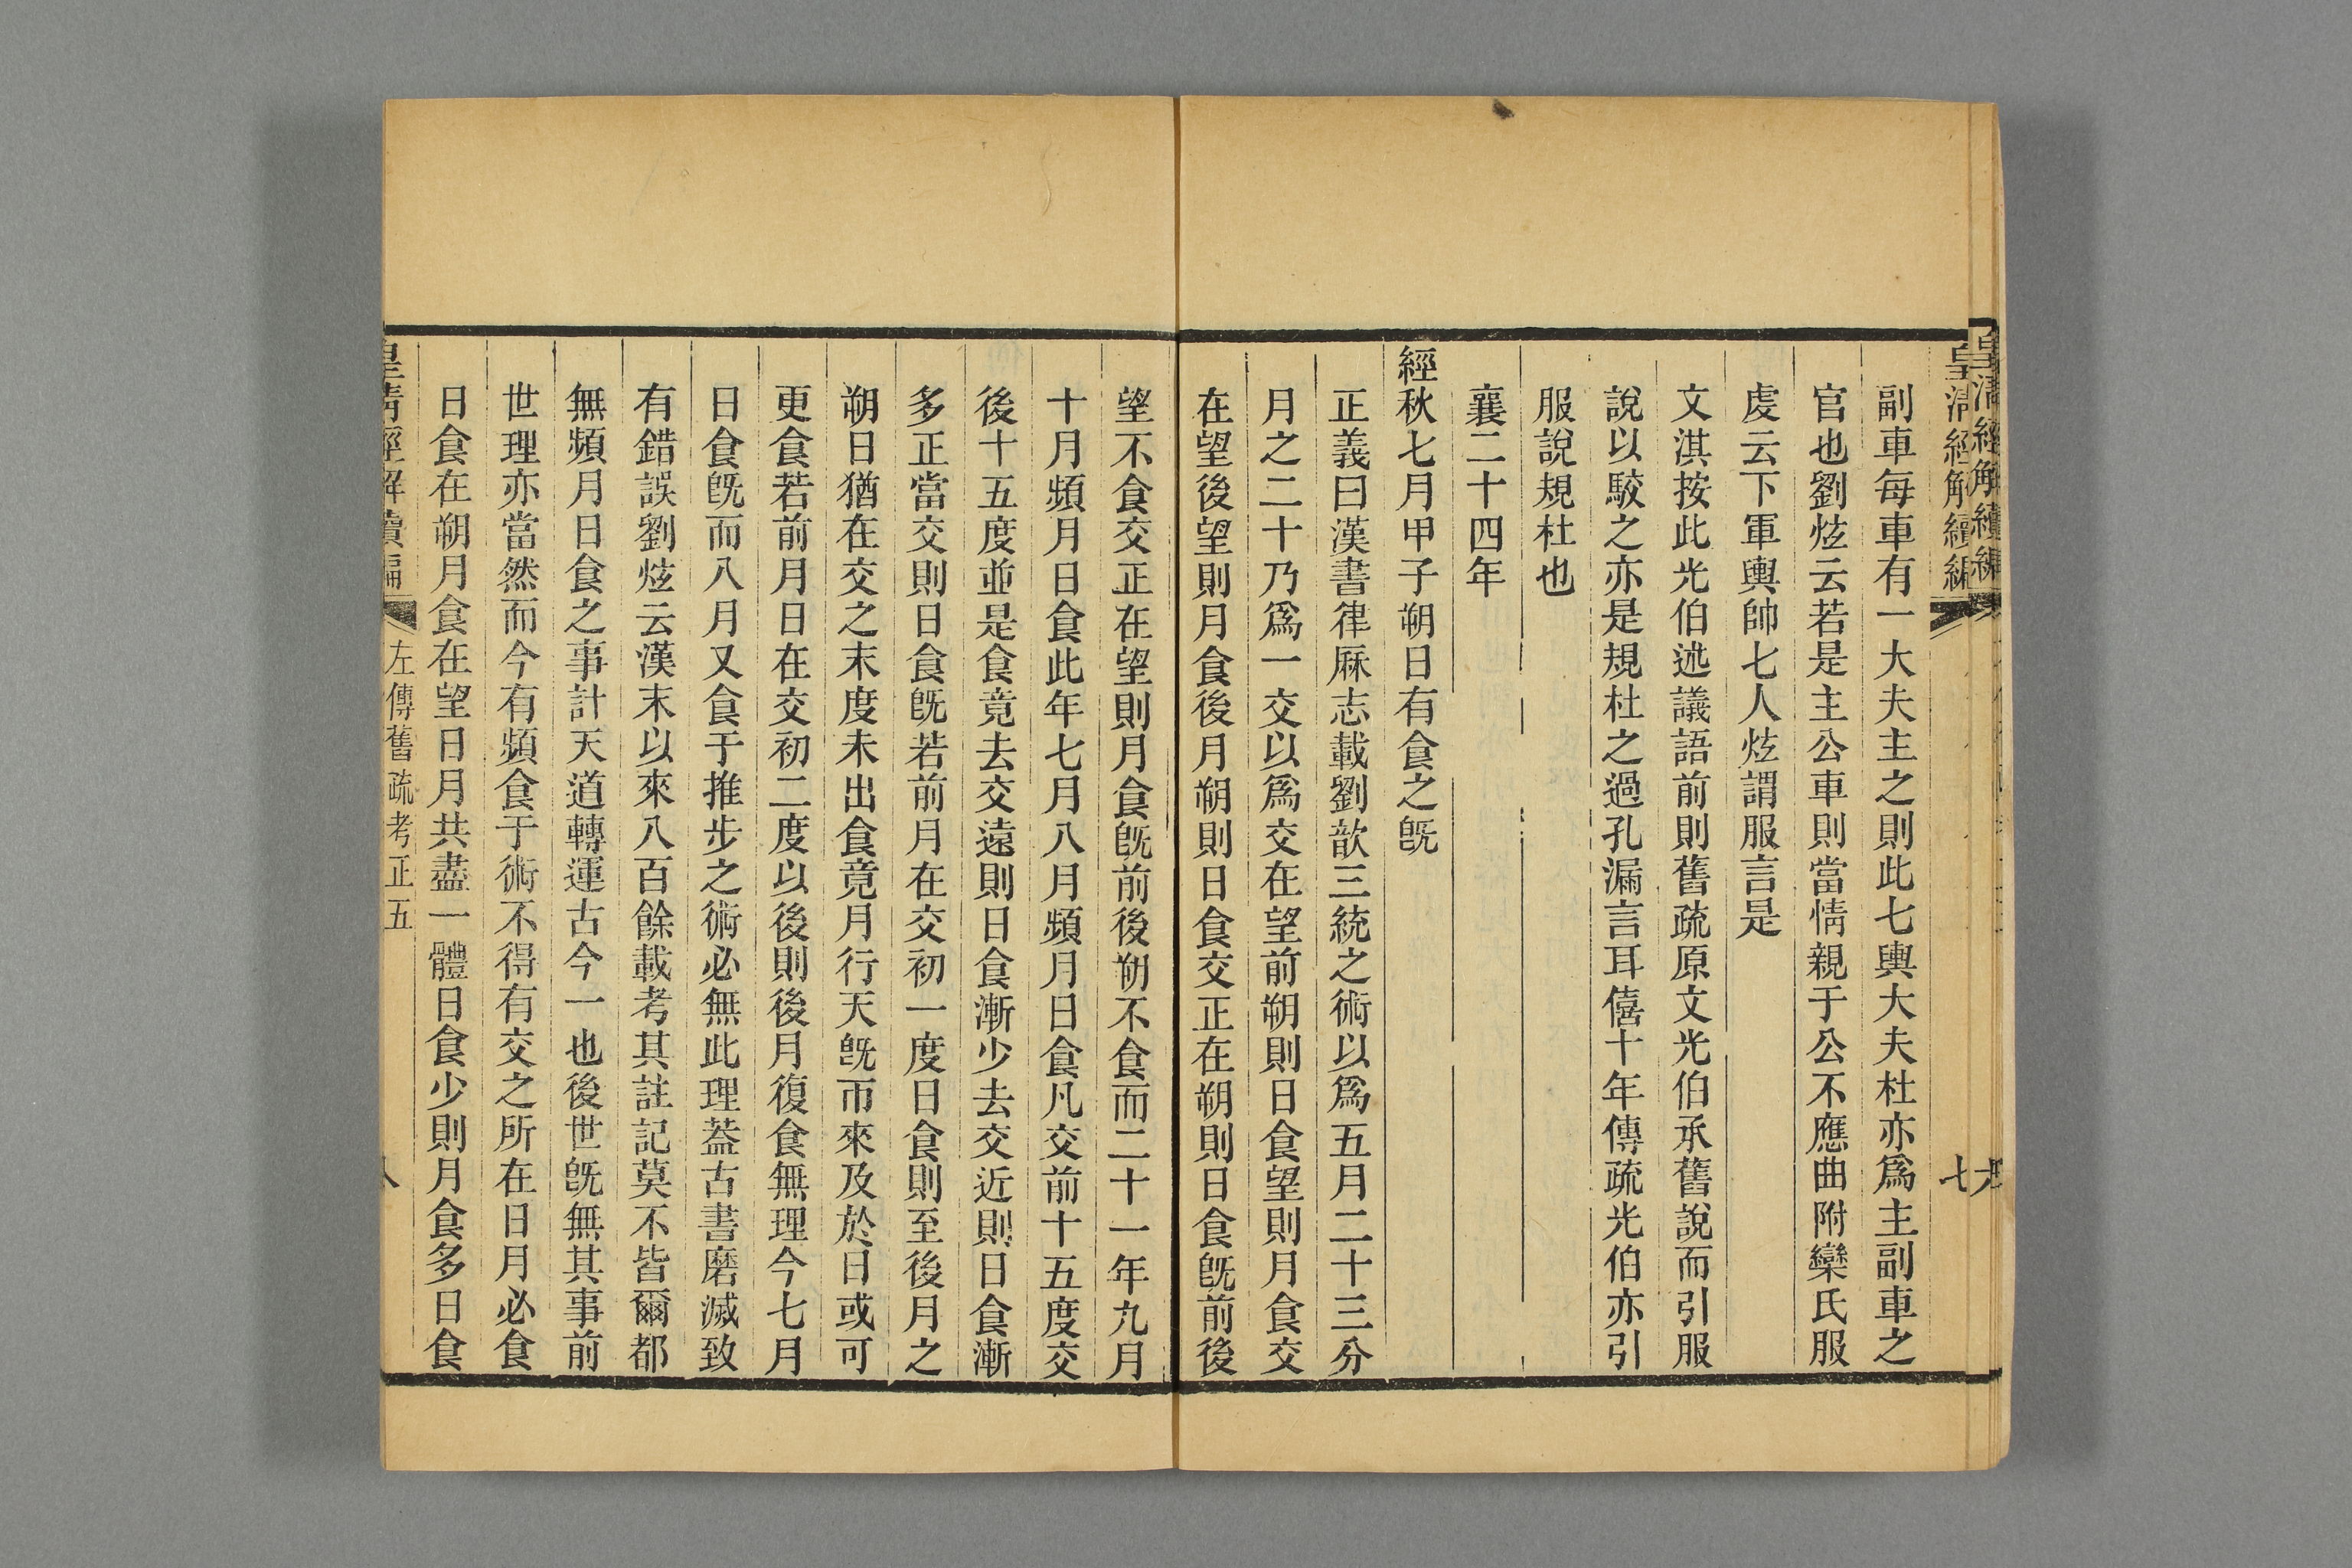 皇清經解續編
皇清經解續編
七
副車每車有一大夫主之則此七輿大夫杜亦爲主副車之
官也劉炫云若是主公車則當情親于公不應曲附欒氏服
虔云下軍輿帥七人炫謂服言是
文淇按此光伯述議語前則舊疏原文光伯承舊說而引服
說以駮之亦是規杜之過孔漏言耳僖十年傳疏光伯亦引
服說規杜也
襄二十四年
經秋七月甲子朔日有食之旣
正義曰漢書律厤志載劉歆三統之術以爲五月二十三分
月之二十乃爲一交以爲交在望前朔則日食望則月食交
在望後望則月食後月朔則日食交正在朔則日食旣前後
望不食交正在望則月食旣前後朔不食而二十一年九月
十月頻月日食此年七月八月頻月日食凡交前十五度交
後十五度並是食竟去交遠則日食漸少去交近則日食漸
多正當交則日食旣若前月在交初一度日食則至後月之
朔日猶在交之末度未出食竟月行天旣帀來及於日或可
更食若前月日在交初二度以後則後月復食無理今七月
日食旣而八月又食于推步之術必無此理葢古書磨滅致
有錯誤劉炫云漢末以來八百餘載考其註記莫不皆爾都
無頻月日食之事計天道轉運古今一也後世旣無其事前
世理亦當然而今有頻食于術不得有交之所在日月必食
日食在朔月食在望日月共盡一體日食少則月食多日食
皇清經解續編
左傳舊疏考正五
八